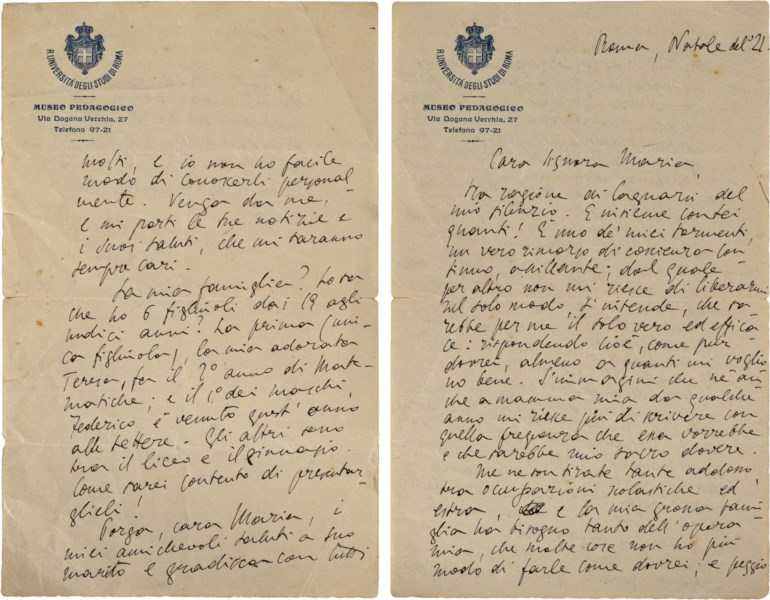 R. UNIVERSITÀ DEGLI STUDI DI ROMA
MUSEO PEDAGOGICO
Via Dogana Vecchia, 27
Telefono 97-21
molti, e io non ho facile
modo di conoscerli personal
mente. Venga da me,
e mi porti le sue notizie e
i suoi saluti, che mi saranno
sempre cari.
La mia famiglia? Lo sa
che ho 6 figliuoli dai 19 agli
undici anni? La prima (uni-
ca figliuola), la mia adorata
Teresa, fa il 2° anno di Mate-
matiche; e il 1° dei maschi,
Federico è venuto quest'anno
alle Lettere. Gli altri sono
tra il liceo e il ginnasio.
Come sarei contento di presentar-
glieli!
Porga, cara Maria, i
miei amichevoli saluti a suo
marito e gradisca con tutti
R. UNIVERSITÀ DEGLI STUDI DI ROMA
MUSEO PEDAGOGICO
Via Dogana Vecchia, 27
Telefono 97-21
Roma, Natale del '21.
Cara Signora Maria,
Ha ragione di lagnarsi del
mio silenzio. E insieme con lei
quanti! È uno de' miei tormenti,
un vero rimorso di coscienza con
tinuo, assillante; dal quale
per altro non mi riesce di liberarmi
nel solo modo, s'intende, che sa
rebbe per me il solo vero ed effica
ce: rispondendo cioè, come pur
dovrei, almeno a quanti mi voglio
no bene. S'immagini che nean
che a mamma mia da qualche
anno mi riesce più di scrivere con
quella frequenza che essa vorrebbe
e che sarebbe mio sacro dovere.
Me ne son tirate tante addosso
tra occupazioni scolastiche ed
extra, e la mia grossa fami
glia ha bisogno tanto dell'opera
mia, che molte cose non ho più
modo di farle come dovrei; e peggio